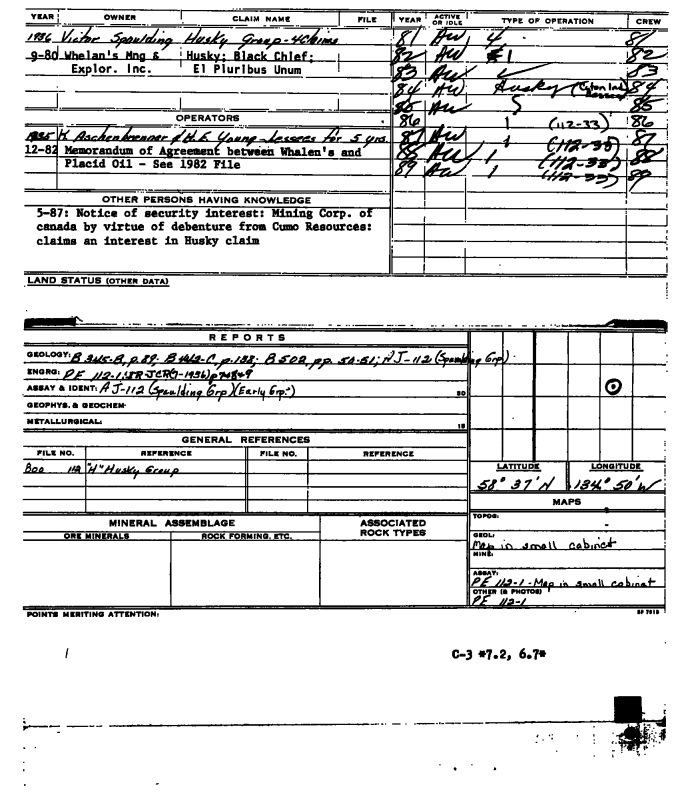 YEAR OWNER CLAIM NAME FILE YEAR ACTIVE OR IDLE TYPE OF OPERATION CREW
1936 Victor Spaulding Husky Group-4 Claims
9-80 Whelan's Mng & Husky; Black Chief;
Explor. Inc. El Pluribus Unum
81 AW 4 81
82 AW 1 82
83 AW 83
84 AW Husky 84
85 AW 85
86 1 (112-33) 86
87 AW 1 (112-33) 87
88 AW 1 (112-33) 88
89 AW 1 (112-33) 89
OPERATORS
1935 K. Aschenbrenner & H.E. Young-Lessees for 5 yrs.
12-82 Memorandum of Agreement between Whalen's and
Placid Oil - See 1982 File
OTHER PERSONS HAVING KNOWLEDGE
5-87: Notice of security interest: Mining Corp. of
canada by virtue of debenture from Cumo Resources:
claims an interest in Husky claim
LAND STATUS (OTHER DATA)
REPORTS
GEOLOGY: B 502, pp. 50-51; AJ-112 (Spaulding Grp)
ENGRG: PE 112-1;
ASSAY & IDENT: AJ-112 (Spaulding Grp)(Early Grp.)
GEOPHYS. & GEOCHEM.
METALLURGICAL:
GENERAL REFERENCES
FILE NO. REFERENCE FILE NO. REFERENCE
112 "H" Husky Group
LATITUDE LONGITUDE
58° 37' N 134° 50' W
MAPS
TOPOG:
GEOL:
Map in small cabinet
MINE:
ASSAY:
PE 112-1 - Map in small cabinet
OTHER (& PHOTOS)
PE 112-1
MINERAL ASSEMBLAGE ASSOCIATED ROCK TYPES
ORE MINERALS ROCK FORMING, ETC.
POINTS MERITING ATTENTION:
C-3 *7.2, 6.7*